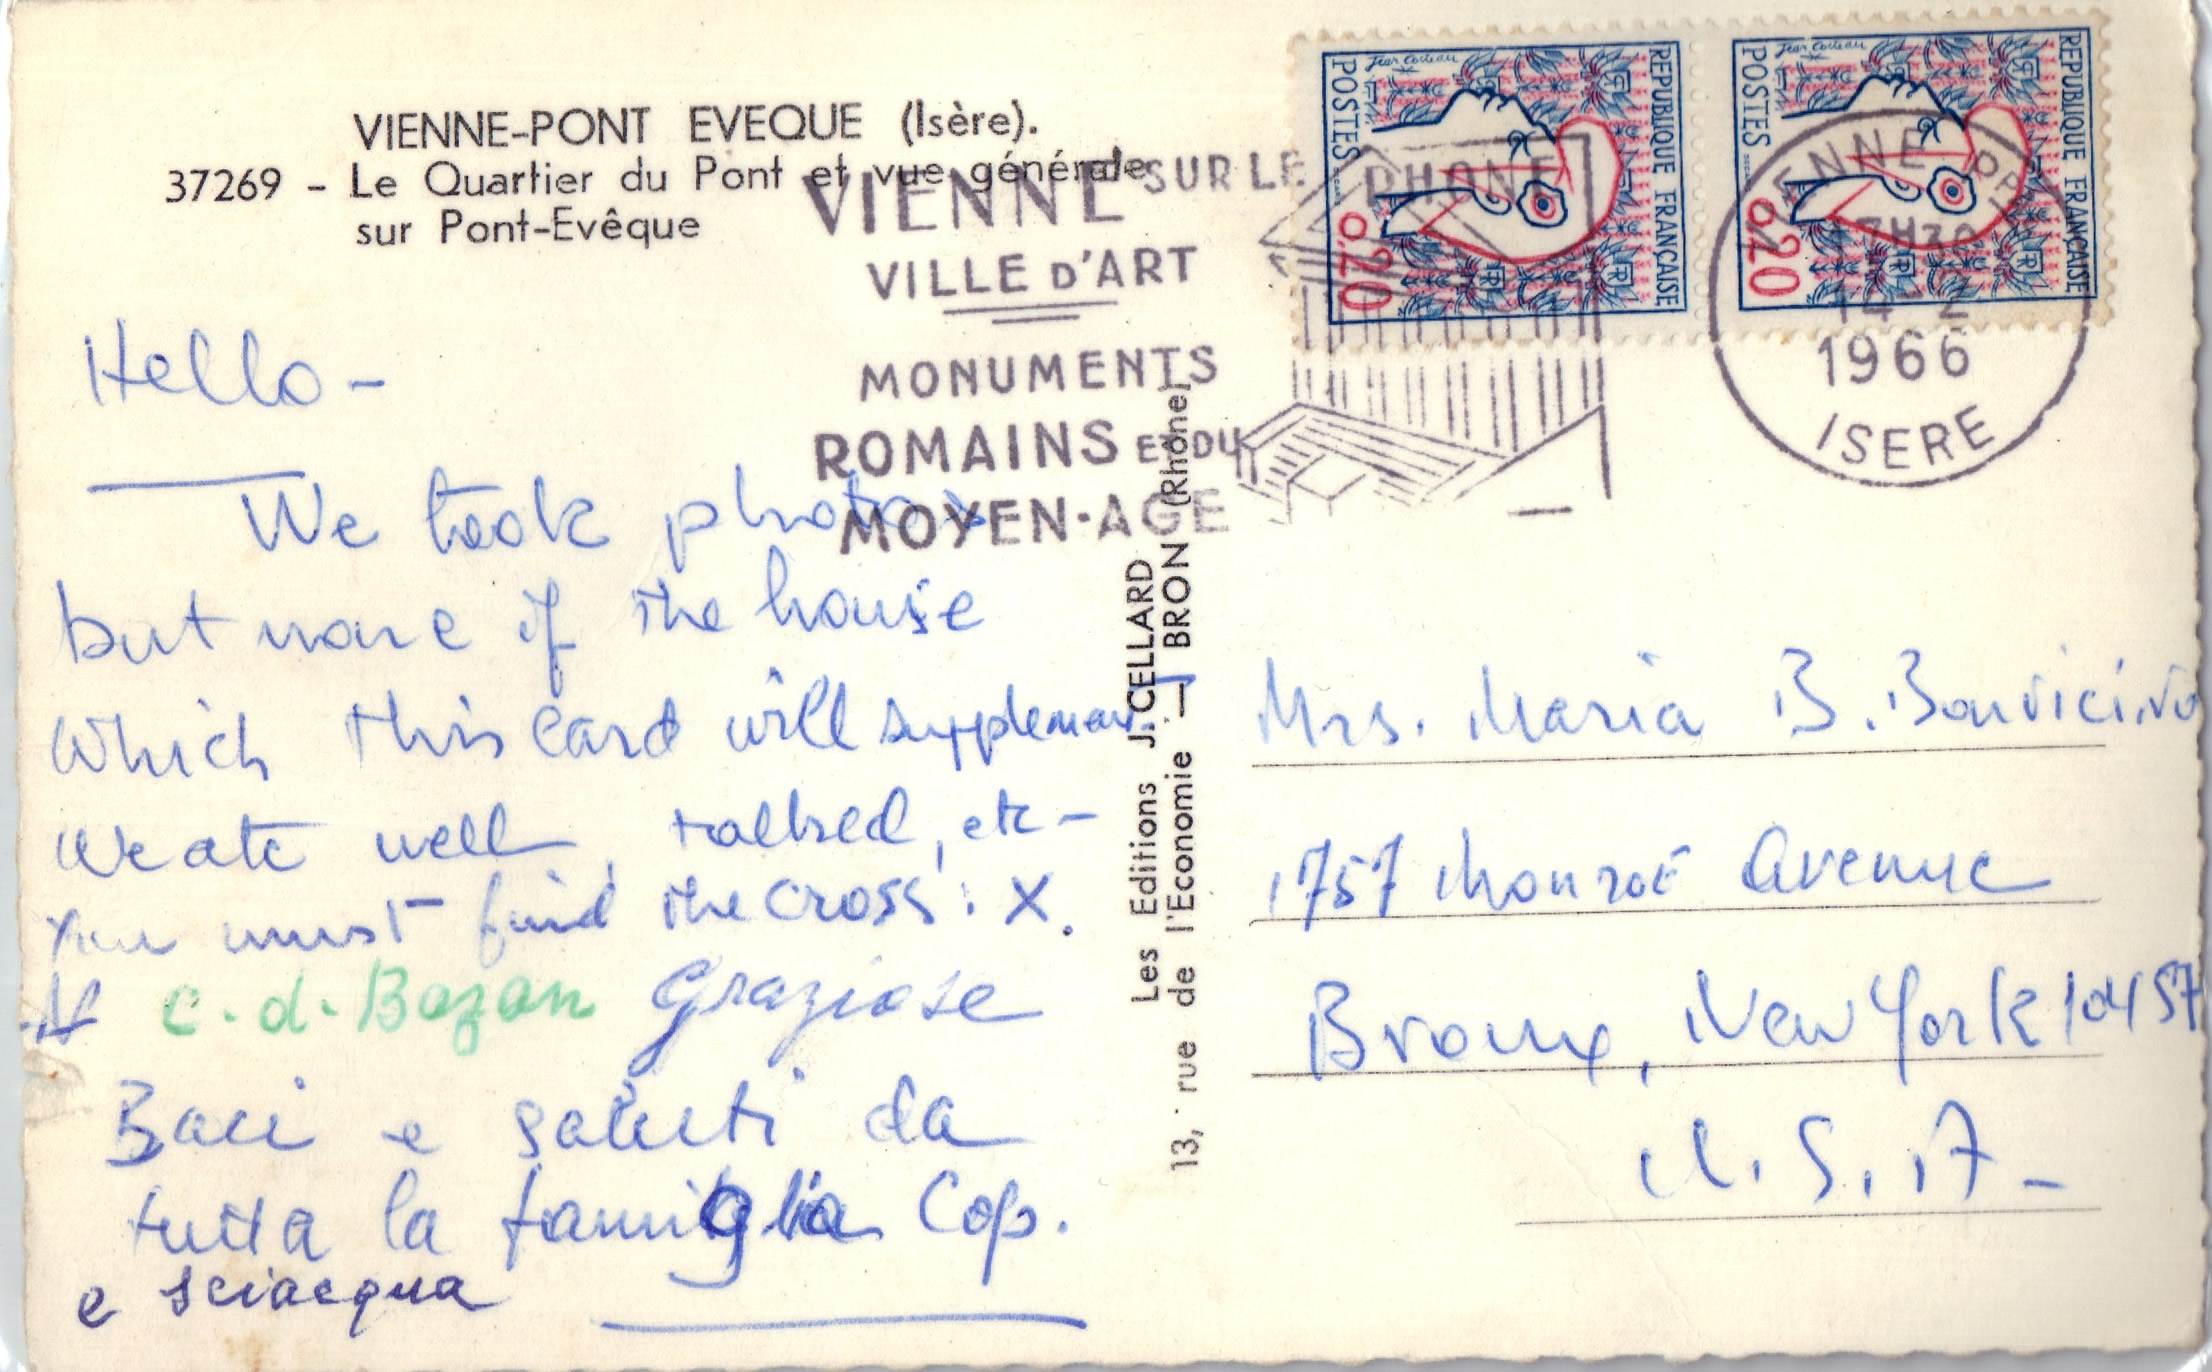 VIENNE-PONT EVEQUE (Isère).
37269 - Le Quartier du Pont et vue générale
sur Pont-Evêque
VIENNE SUR LE RHONE
VILLE D'ART
MONUMENTS
ROMAINS ET DU
MOYEN-AGE
Jean Cocteau
REPUBLIQUE FRANÇAISE
POSTES
0,20
Jean Cocteau
REPUBLIQUE FRANÇAISE
POSTES
0,20
VIENNE
1966
ISERE
Hello -
We took photos
but none if the house
which this card will supplement
We ate well, talked, etc -
You must find the cross: X.
c. d. Bazan Graziose
Baci e saluti da
tutta la famiglia Cop.
e sciacqua
Les Editions J. CELLARD
13, rue de l'Economie — BRON (Rhône)
Mrs. Maria B. Bonvicino
1757 Monroe Avenue
Bronx, New York 10457
U.S.A -